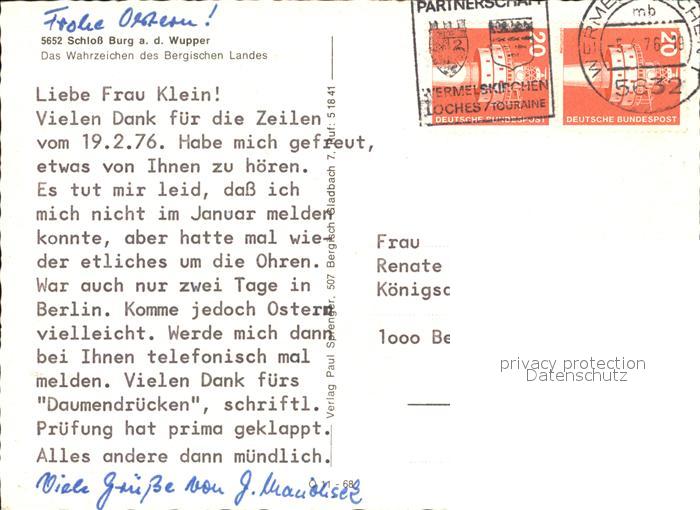 Frohe Ostern!
5652 Schloß Burg a. d. Wupper
Das Wahrzeichen des Bergischen Landes
Liebe Frau Klein!
Vielen Dank für die Zeilen
vom 19.2.76. Habe mich gefreut,
etwas von Ihnen zu hören.
Es tut mir leid, daß ich
mich nicht im Januar melden
konnte, aber hatte mal wie-
der etliches um die Ohren.
War auch nur zwei Tage in
Berlin. Komme jedoch Ostern
vielleicht. Werde mich dann
bei Ihnen telefonisch mal
melden. Vielen Dank fürs
"Daumendrücken", schriftl.
Prüfung hat prima geklappt.
Alles andere dann mündlich.
Viele Grüße von J.
Verlag Paul Sprenger, 507 Bergisch Gladbach 7, Ruf: 5 18 41
PARTNERSCHAFT
WERMELSKIRCHEN
LOCHES/TOURAINE
20
DEUTSCHE BUNDESPOST
20
DEUTSCHE BUNDESPOST
WERMELSKIRCHEN
mb
5632
Frau
Renate
Königs
1000 Be
privacy protection
Datenschutz